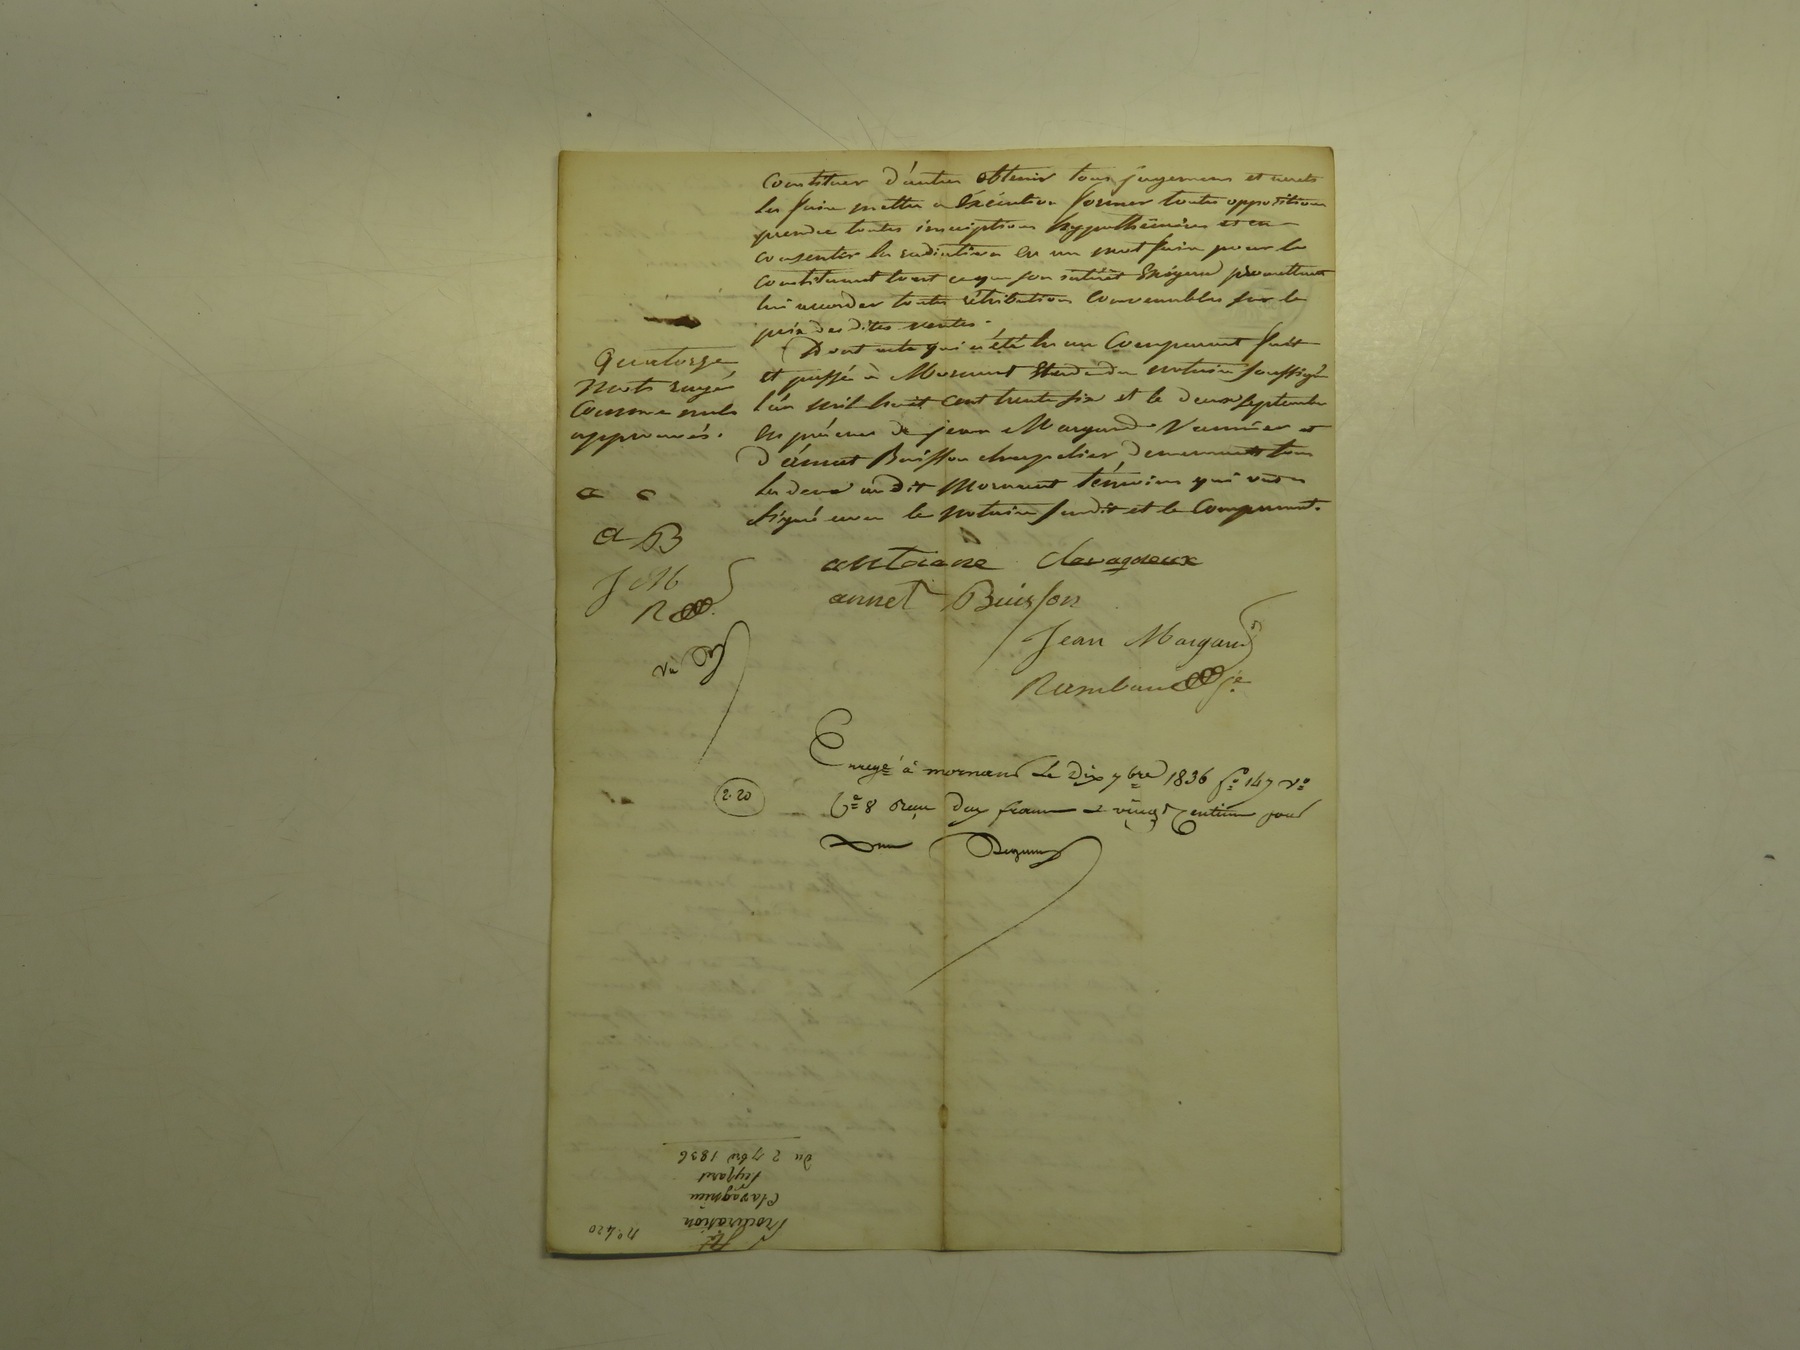 Constituer d'autres obtenir tous jugemens et arrets
les faire mettre a Exécution former toutes oppositions
prendre toutes inscriptions hypothécaires et en
consentir la radiation en un mot faire pour le
constituant tout ce que son intérêt Exigera promettant
lui accorder toutes rétributions Convenables sur le
prix des dites ventes.
Dont acte qui a été lu au Comparant fait
et passé à Mornant Etude du notaire soussigné
l'an mil huit cent trente six et le deux Septembre
en présence de jean Margand Vannier et
d'annet Buisson chapelier demeurant tous
les deux au dit Mornant témoins qui ont
signé avec le notaire susdit et le Comparant.
Quatorze
mots rayés
Comme nuls
approuvés.
a c
a B
J M
R
Vu
antoine clavagneux
annet Buisson
Jean Margand
Rambaud
Enregé à mornant Le dix 7bre 1836 fo 147 vo
Ce 8 reçu deux francs et vingt Centimes pour
2.20
du 2 7bre 1836
Clavagnieu
Procuration
No 420